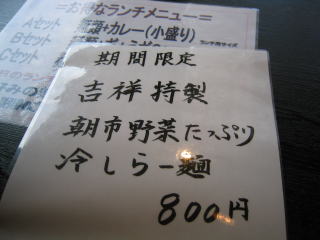 =お得なランチメニュー=
Aセット
+カレー(小盛り)
Bセット
Cセット
期間限定
吉祥特製
朝市野菜たっぷり
冷しらー麺
800円